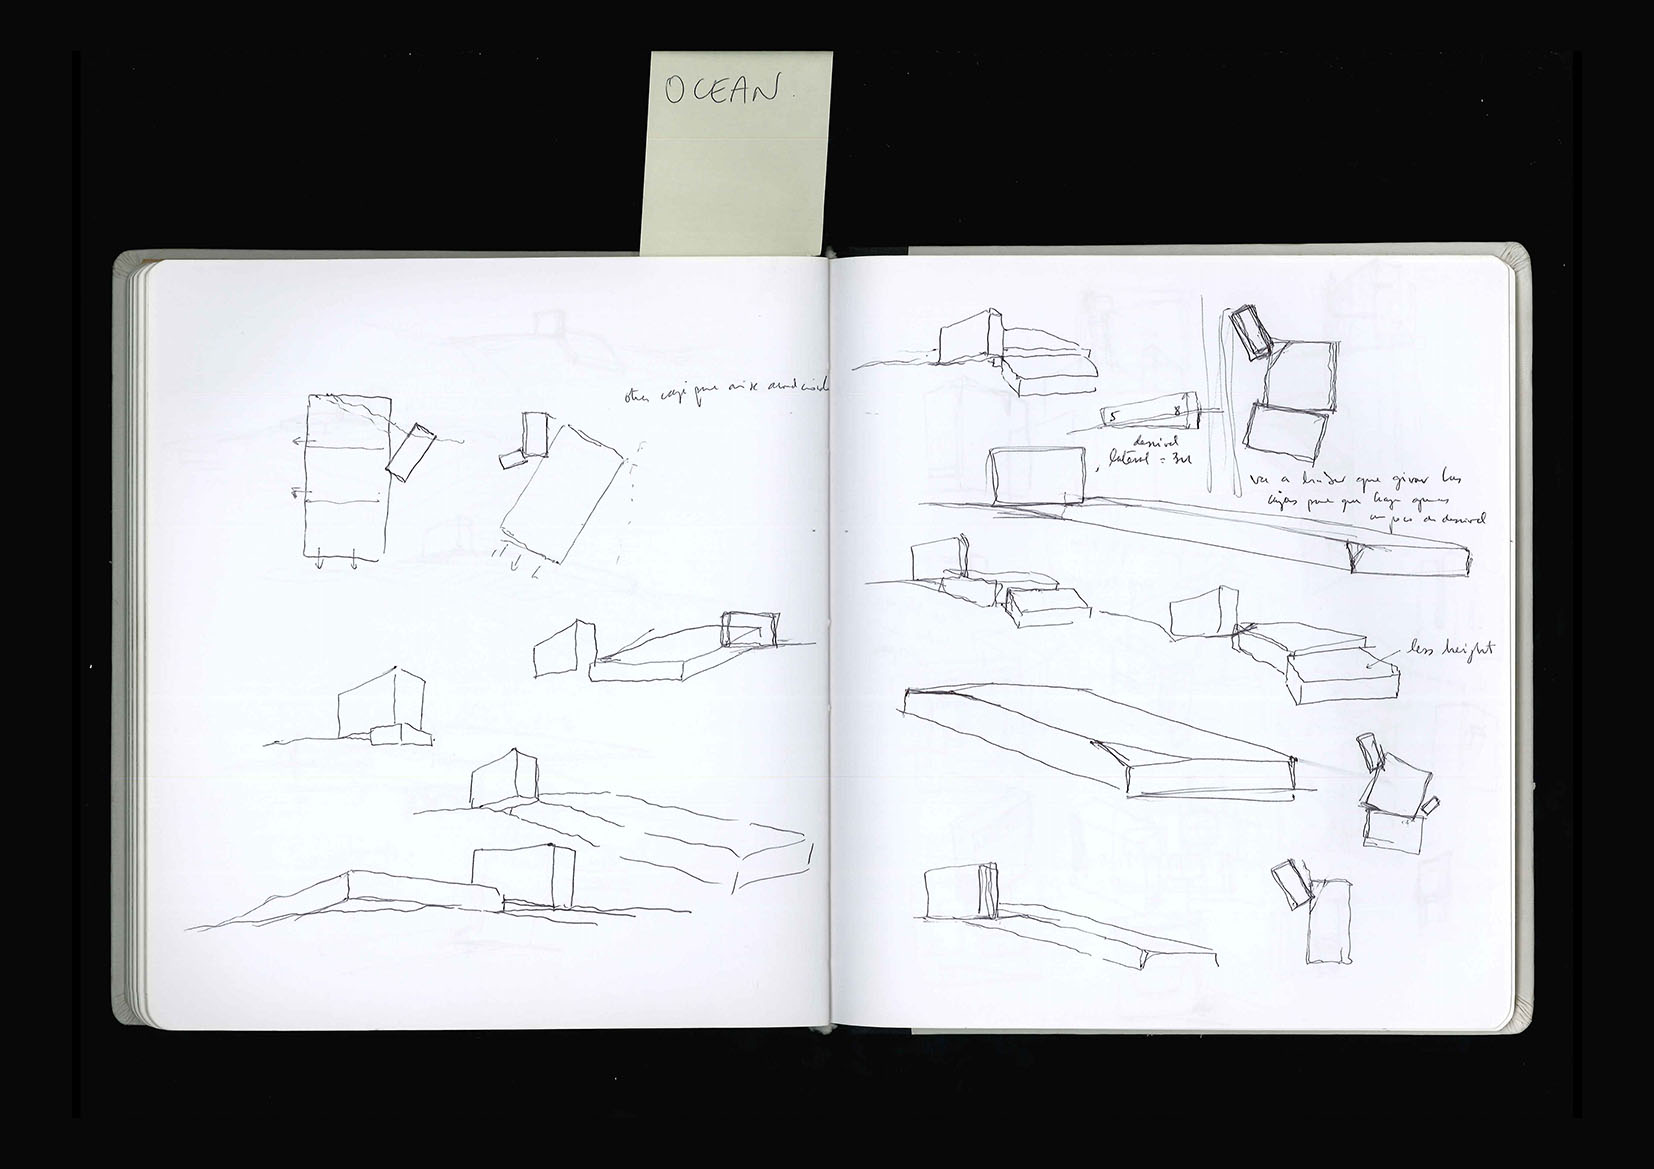 OCEAN.
otra
5 8
desnivel
lateral = 3m
va a haber que girar las
cajas para que haya apenas
un poco de desnivel
less height